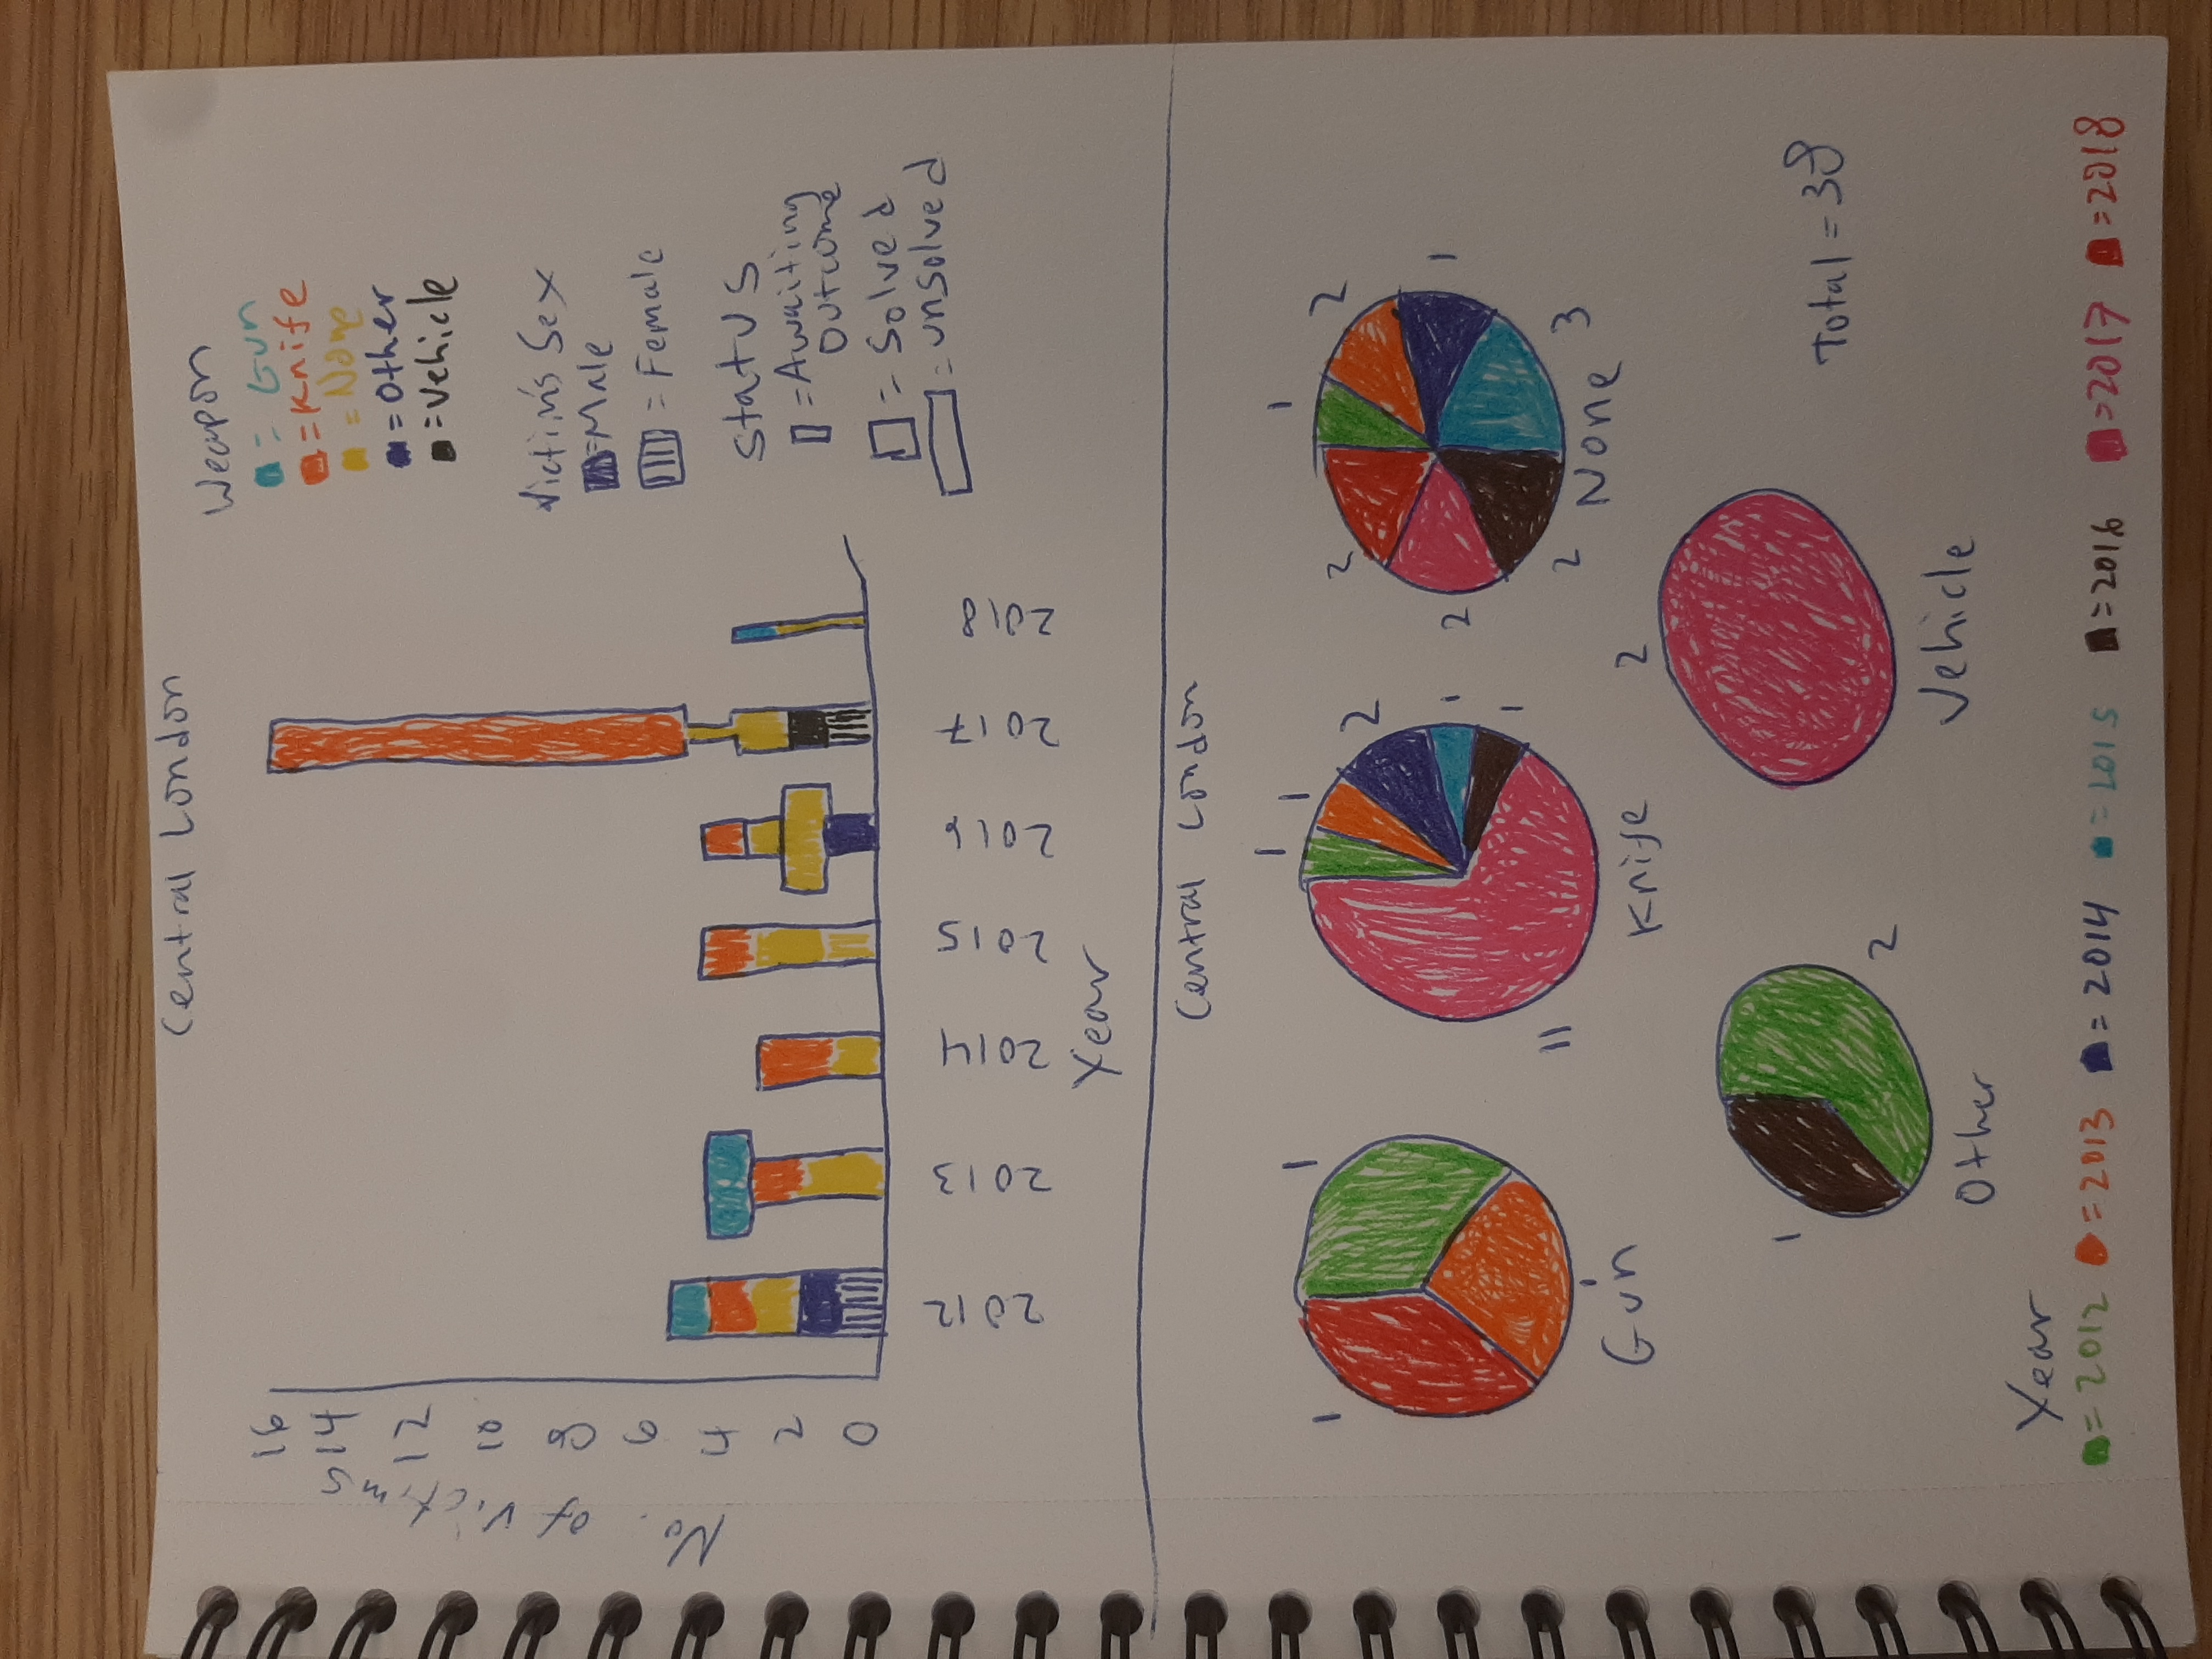 Central London
Weapon
= Gun
= Knife
= None
= Other
= Vehicle
Victim's Sex
= Male
= Female
Status
= Awaiting
Outcome
= Solved
= unsolved
No. of victims
16
14
12
10
8
6
4
2
0
2012 2013 2014 2015 2016 2017 2018
Year
Central London
1
1
Gun
1
1
2
1
1
11
Knife
1
2
1
3
2
2
2
None
1
2
Other
2
Vehicle
Total = 38
Year
= 2012 = 2013 = 2014 = 2015 = 2016 = 2017 = 2018